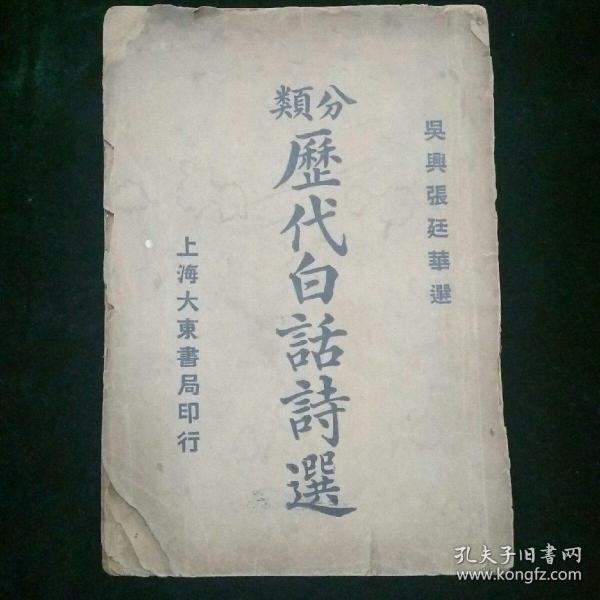 吳興張廷華選
分類
歷代白話詩選
上海大東書局印行
孔夫子旧书网
www.kongfz.com